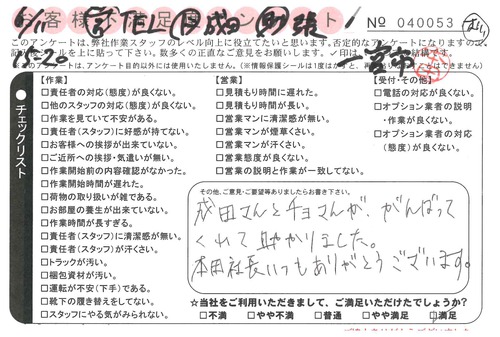 お客様不満足度アンケート
No 040053
このアンケートは、弊社作業スタッフのレベル向上に役立てたいと思います。否定的なアンケートになりますので、
チェックリスト
【作業】
□責任者の対応(態度)が良くない。
□他のスタッフの対応(態度)が良くない。
□作業を見ていて不安がある。
□責任者(スタッフ)に好感が持てない。
□お客様への挨拶が出来ていない。
□ご近所への挨拶・気遣いが無い。
□作業開始前の内容確認がなかった。
□作業開始時間が遅れた。
□荷物の取り扱いが雑である。
□お部屋の養生が出来ていない。
□作業時間が長すぎる。
□責任者(スタッフ)に清潔感が無い。
□責任者(スタッフ)が汗くさい。
□トラックが汚い。
□梱包資材が汚い。
□運転が不安(下手)である。
□靴下の履き替えをしてない。
□スタッフにやる気がみられない。
【営業】
□見積もり時間に遅れた。
□見積もり時間が長い。
□営業マンに清潔感が無い。
□営業マンが煙草くさい。
□営業マンが汗くさい。
□営業態度が良くない。
□営業の説明と作業が一致してない。
【受付・その他】
□電話の対応が良くない。
□オプション業者の説明
・作業が良くない。
□オプション業者の対応
(態度)が良くない。
その他、ご意見・ご要望等ありましたらお書き下さい。
成田さんとチョさんが、がんばって
くれて助かりました。
本田社長いつもありがとうございます。
☆当社をご利用いただきまして、ご満足いただけたでしょうか?
□不満 □やや不満 □普通 □やや満足 □満足